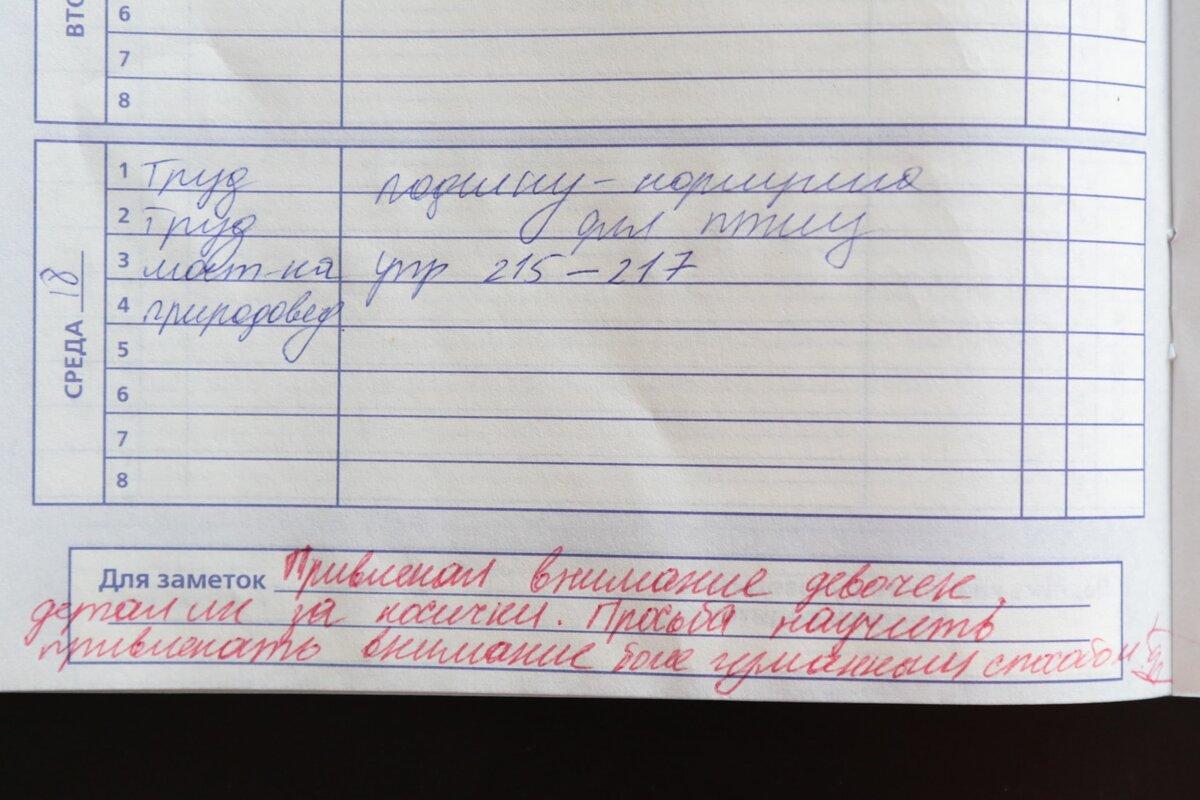 ВТО
6
7
8
СРЕДА 18
1 Труд кормушка
2 Труд для птиц
3 мат-ка упр 215-217
4 природовед
5
6
7
8
Для заметок Привлекал внимание девочек,
за косички. Просьба научить
привлекать внимание более гуманным способом